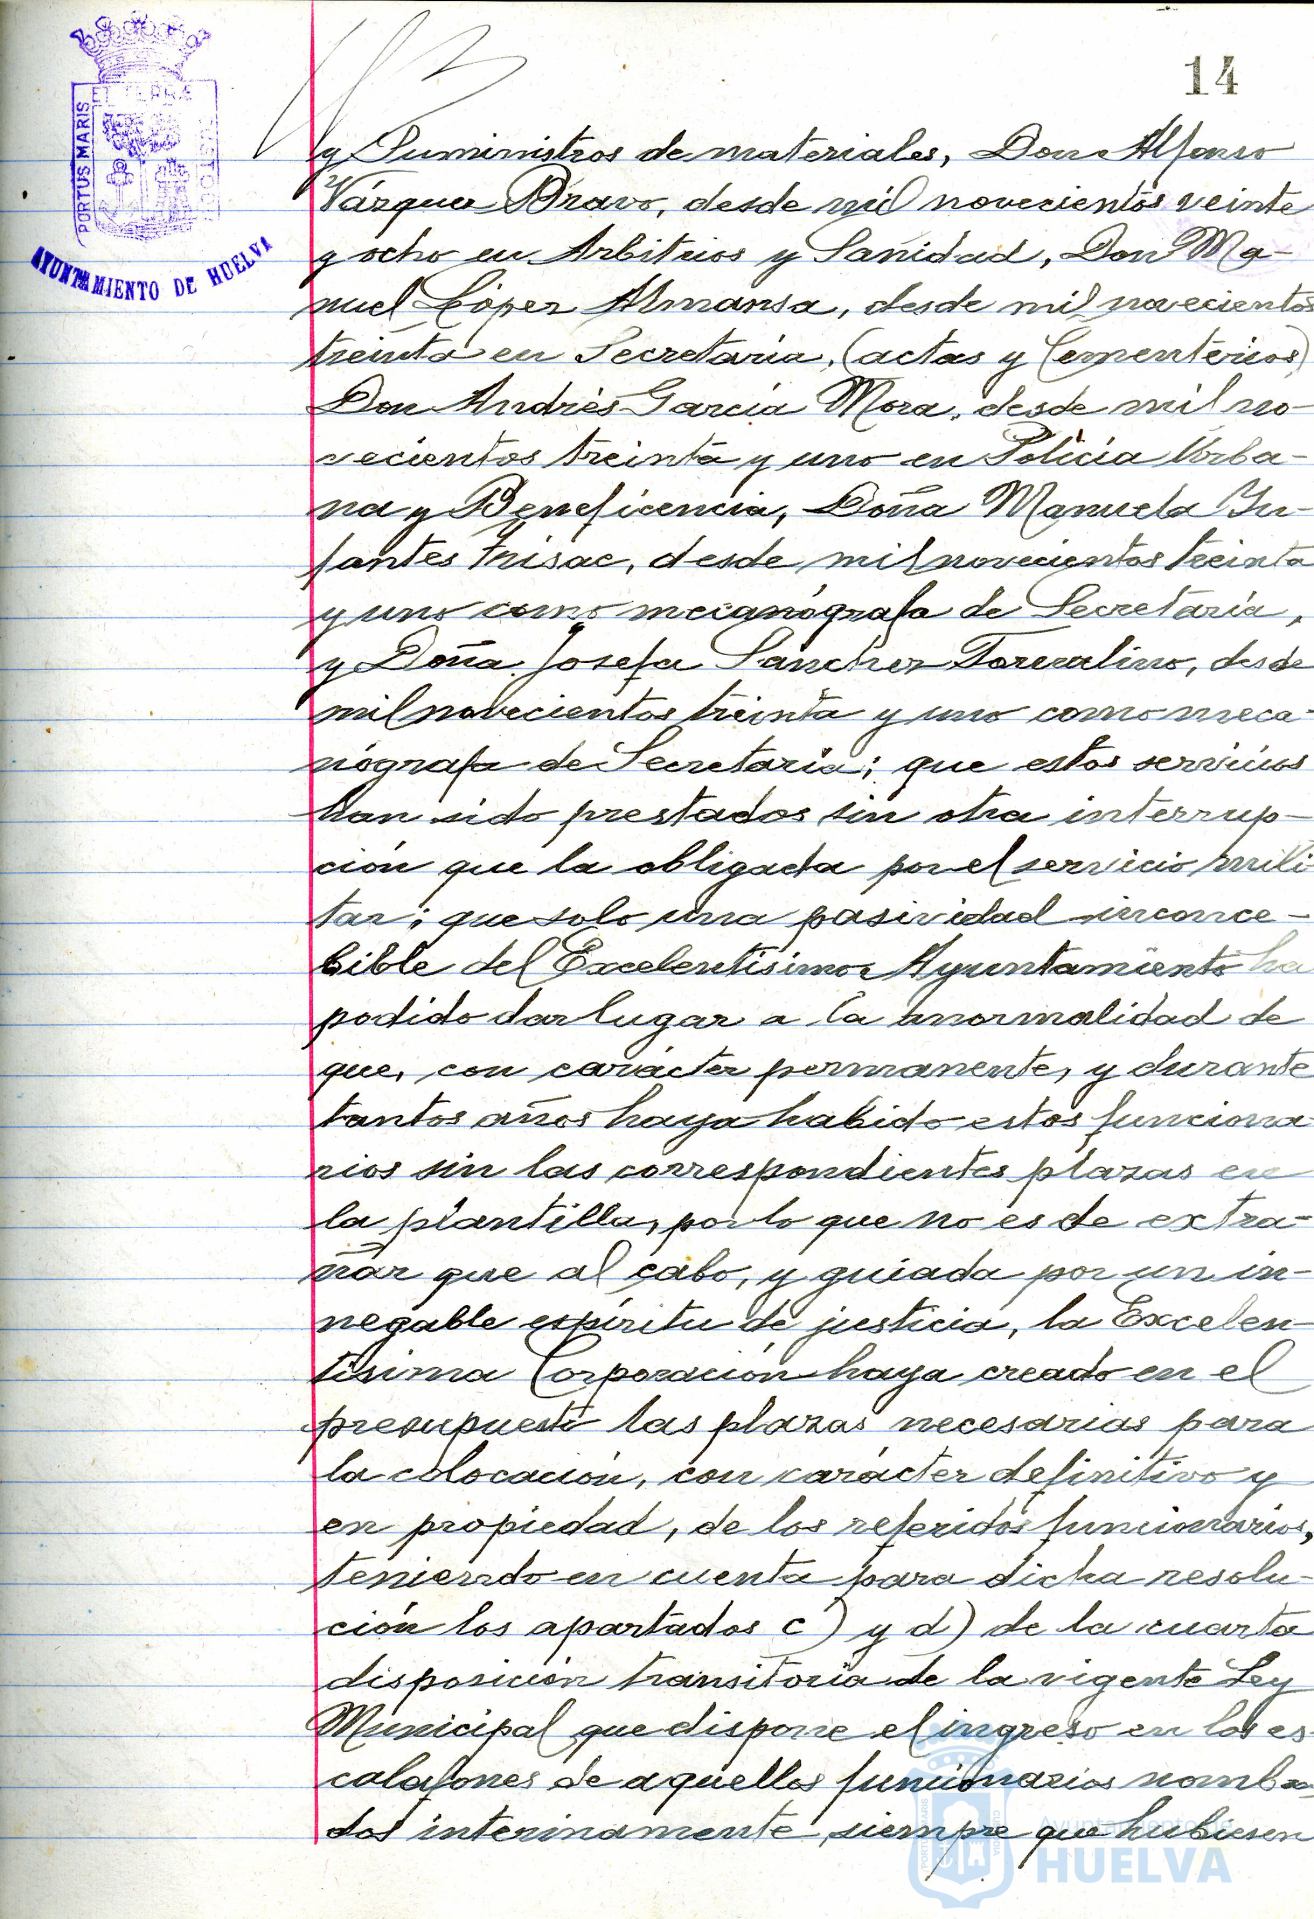 14
PORTUS MARIS
ET TERRÆ
CUSTODIA
AYUNTAMIENTO DE HUELVA
y Suministros de materiales, Don Alfonso
Vázquez Bravo, desde mil novecientos veinte
y ocho en Arbitrios y Sanidad, Don Ma-
nuel López Almansa, desde mil novecientos
treinta en Secretaría, (actas y Cementerios)
Don Andrés García Mora, desde mil no-
vecientos treinta y uno en Policía Urba-
na y Beneficencia, Doña Manuela In-
fantes Frisac, desde mil novecientos treinta
y uno como mecanógrafa de Secretaría,
y Doña Josefa Sanchez desde
mil novecientos treinta y uno como meca-
nógrafa de Secretaría; que estos servicios
han sido prestados sin otra interrup-
ción que la obligada por el servicio mili-
tar; que solo una pasividad inconce-
bible del Excelentísimo Ayuntamiento ha
podido dar lugar a la anormalidad de
que, con carácter permanente, y durante
tantos años haya habido estos funciona
rios sin las correspondientes plazas en
la plantilla, por lo que no es de extra-
ñar que al cabo, y guiada por un in-
negable espíritu de justicia, la Excelen-
tísima Corporación haya creado en el
presupuesto las plazas necesarias para
la colocación, con carácter definitivo y
en propiedad, de los referidos funcionarios,
teniendo en cuenta para dicha resolu-
ción los apartados c) y d) de la cuarta
disposición transitoria de la vigente Ley
Municipal que dispone el ingreso en los es-
calafones de aquellos funcionarios nombra
dos interinamente, siempre que hubiesen
Ayuntamiento de
HUELVA